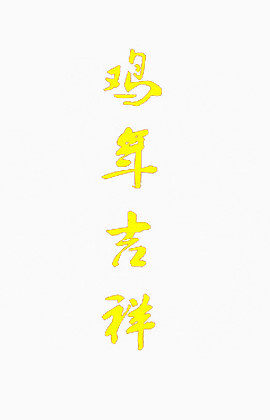 鸡年吉祥